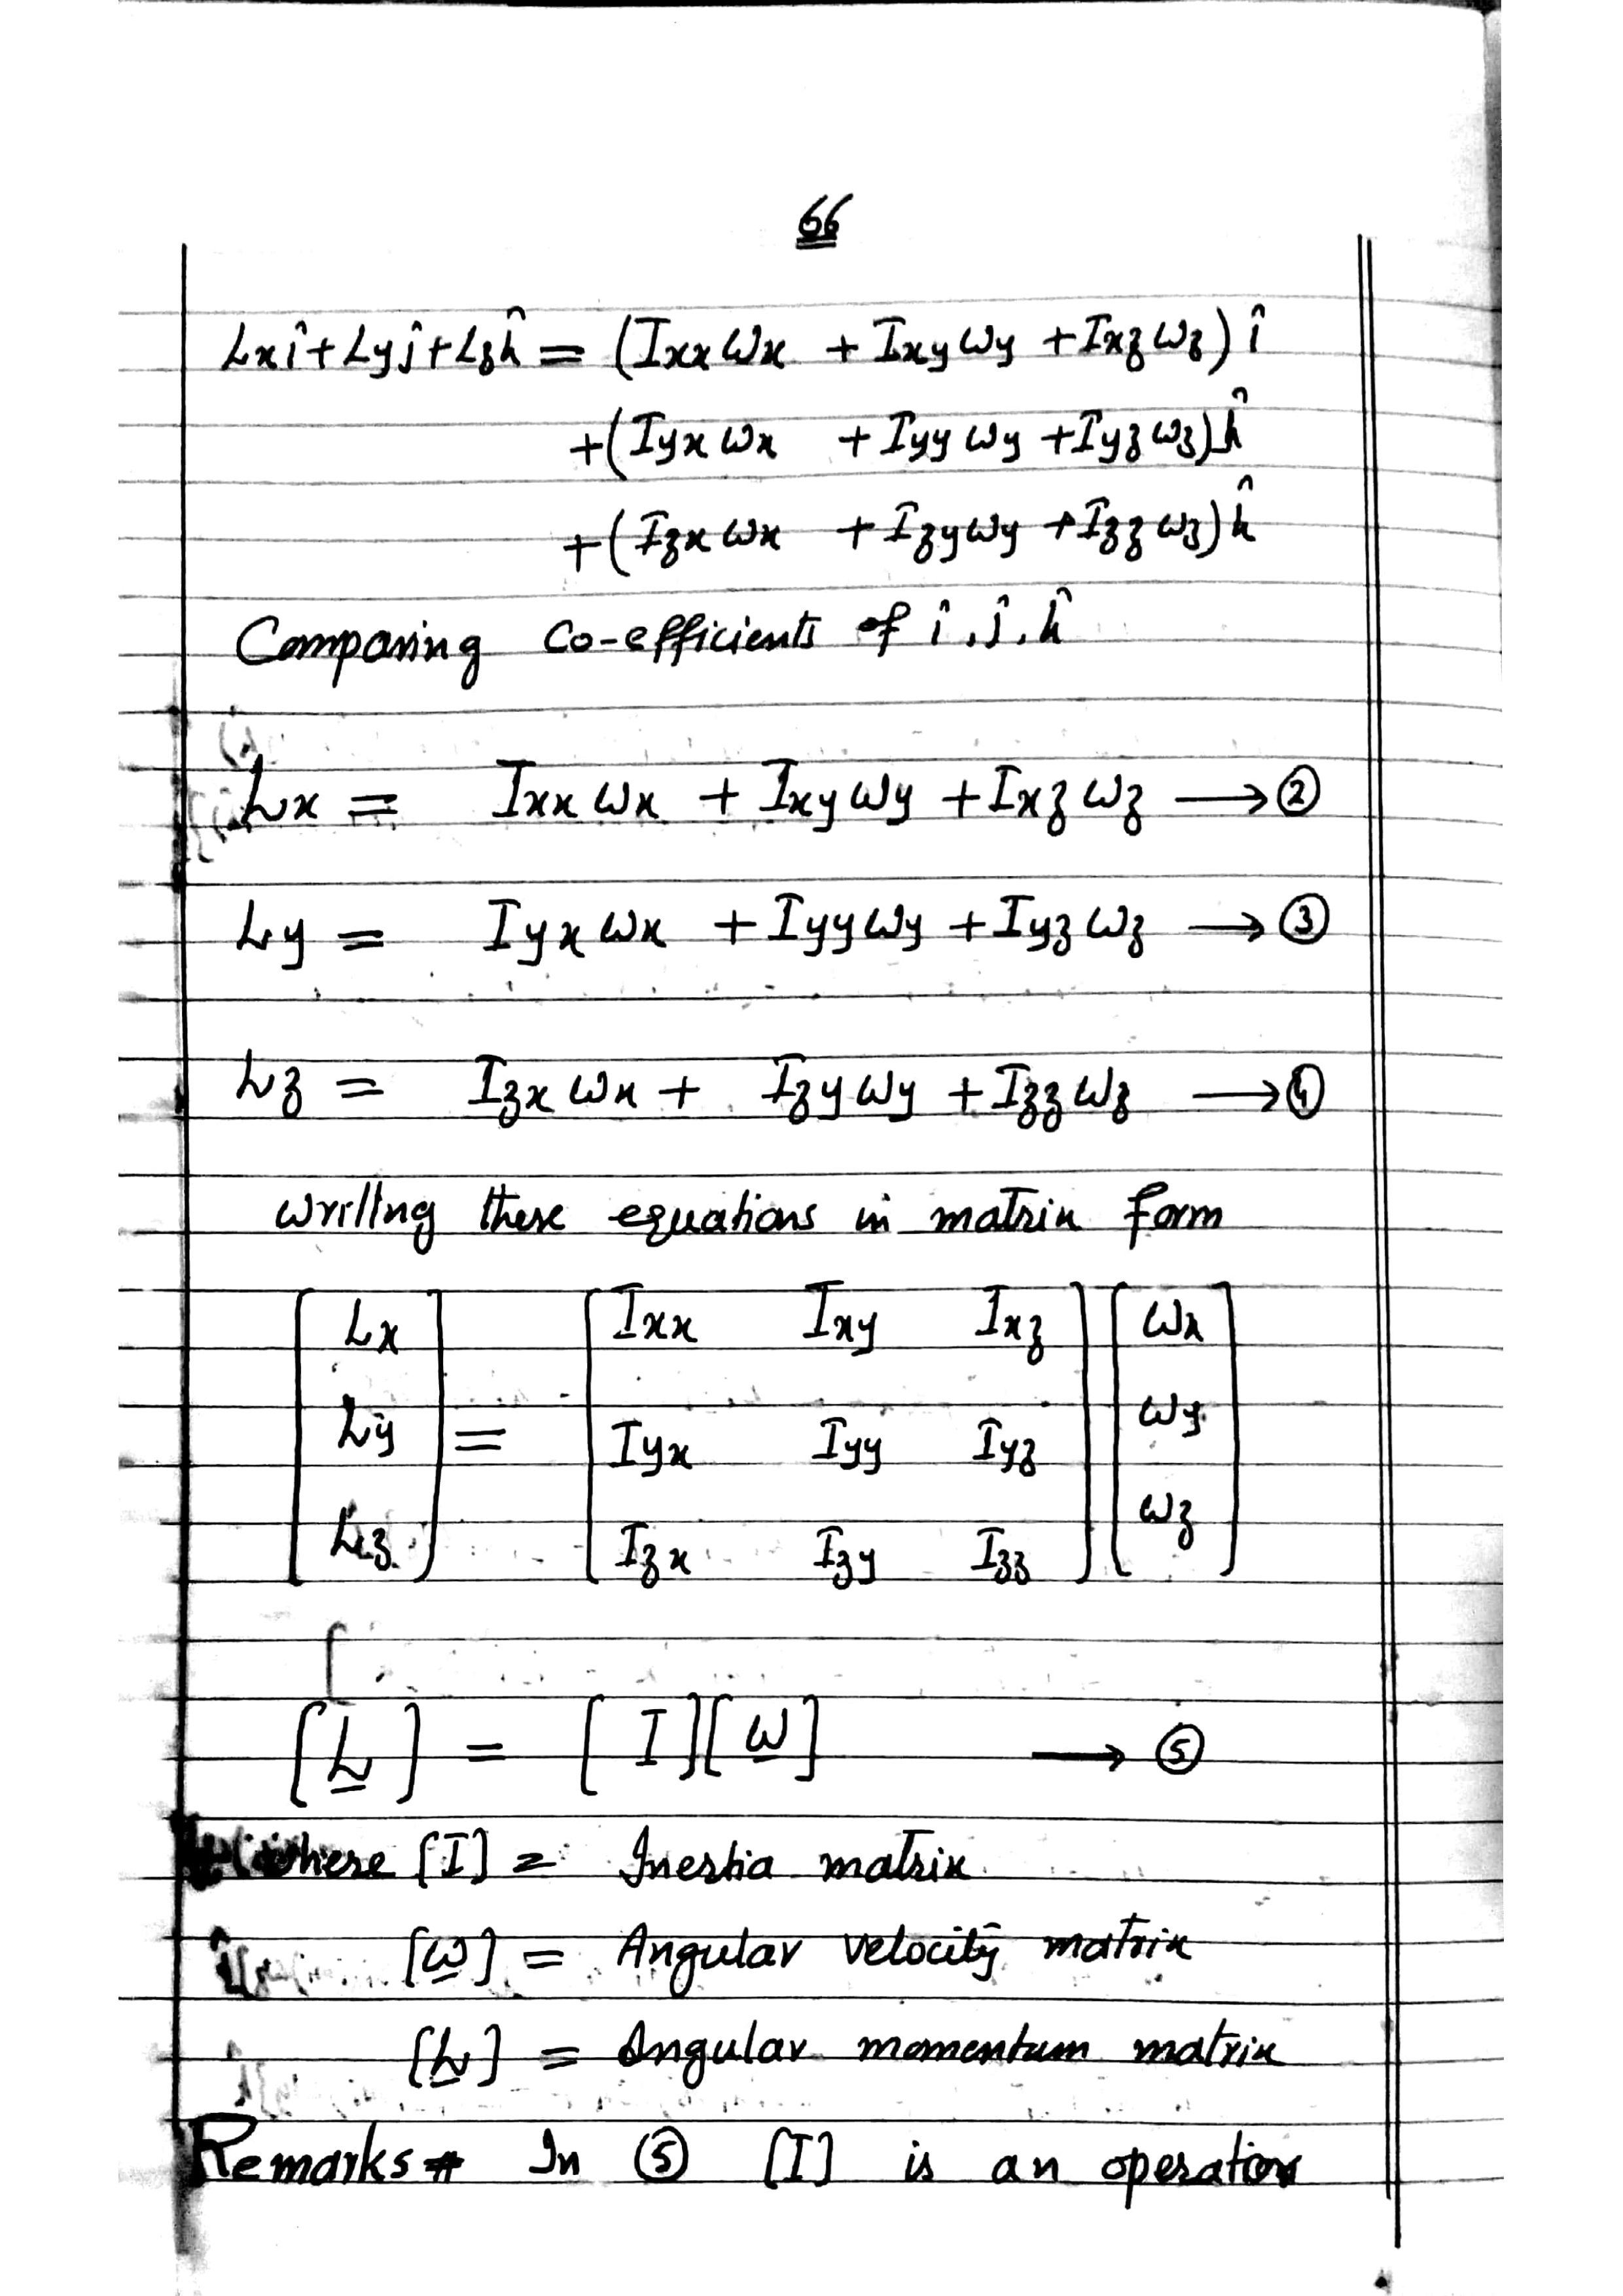 66
Lxî + Lyĵ + Lzk̂ = (Ixx ωx + Ixy ωy + Ixz ωz) î
+ (Iyx ωx + Iyy ωy + Iyz ωz) k̂
+ (Izx ωx + Izy ωy + Izz ωz) k̂
Comparing co-efficients of î, ĵ, k̂
Lx = Ixx ωx + Ixy ωy + Ixz ωz → ②
Ly = Iyx ωx + Iyy ωy + Iyz ωz → ③
Lz = Izx ωx + Izy ωy + Izz ωz → ④
writing these equations in matrix form
[Lx] [Ixx Ixy Ixz] [ωx]
[Ly] = [Iyx Iyy Iyz] [ωy]
[Lz] [Izx Izy Izz] [ωz]
[L] = [I][ω] → ⑤
where [I] = Inertia matrix
[ω] = Angular velocity matrix
[L] = Angular momentum matrix
Remarks# In ⑤ [I] is an operator